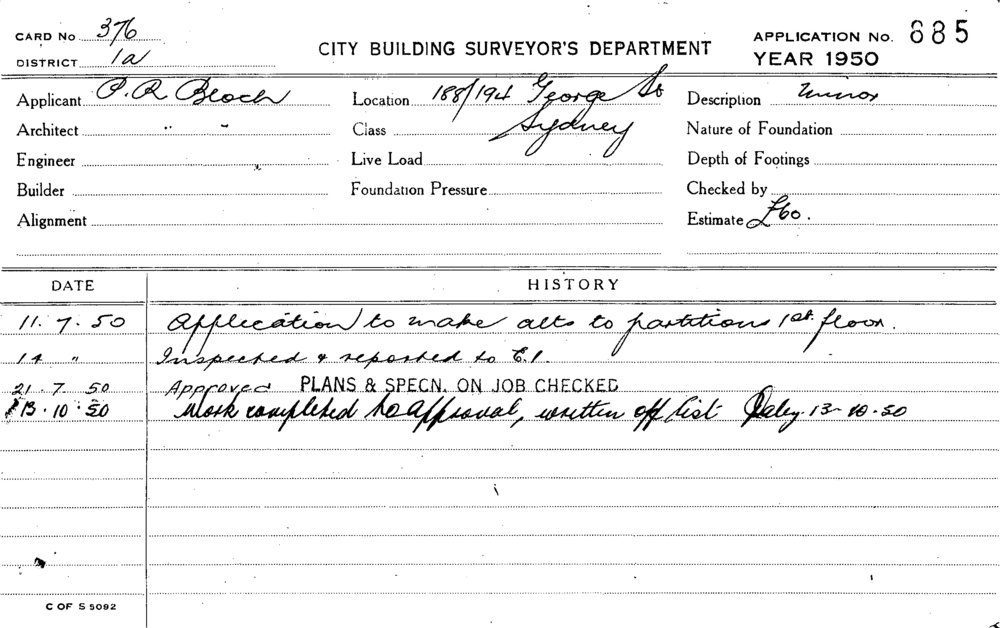 CARD No 376
DISTRICT 1a
CITY BUILDING SURVEYOR'S DEPARTMENT
APPLICATION No. 885
YEAR 1950
Applicant P. R. Bloch
Architect " "
Engineer
Builder
Alignment
Location 188/194 George St
Class Sydney
Live Load
Foundation Pressure
Description Minor
Nature of Foundation
Depth of Footings
Checked by
Estimate £60.
DATE HISTORY
11. 7. 50 Application to make alts to partitions 1st floor.
14 " Inspected & reported to E.I.
21. 7. 50 Approved PLANS & SPECN. ON JOB CHECKED
13. 10. 50 Work completed to approval, written off list 13-10-50
C OF S 5092